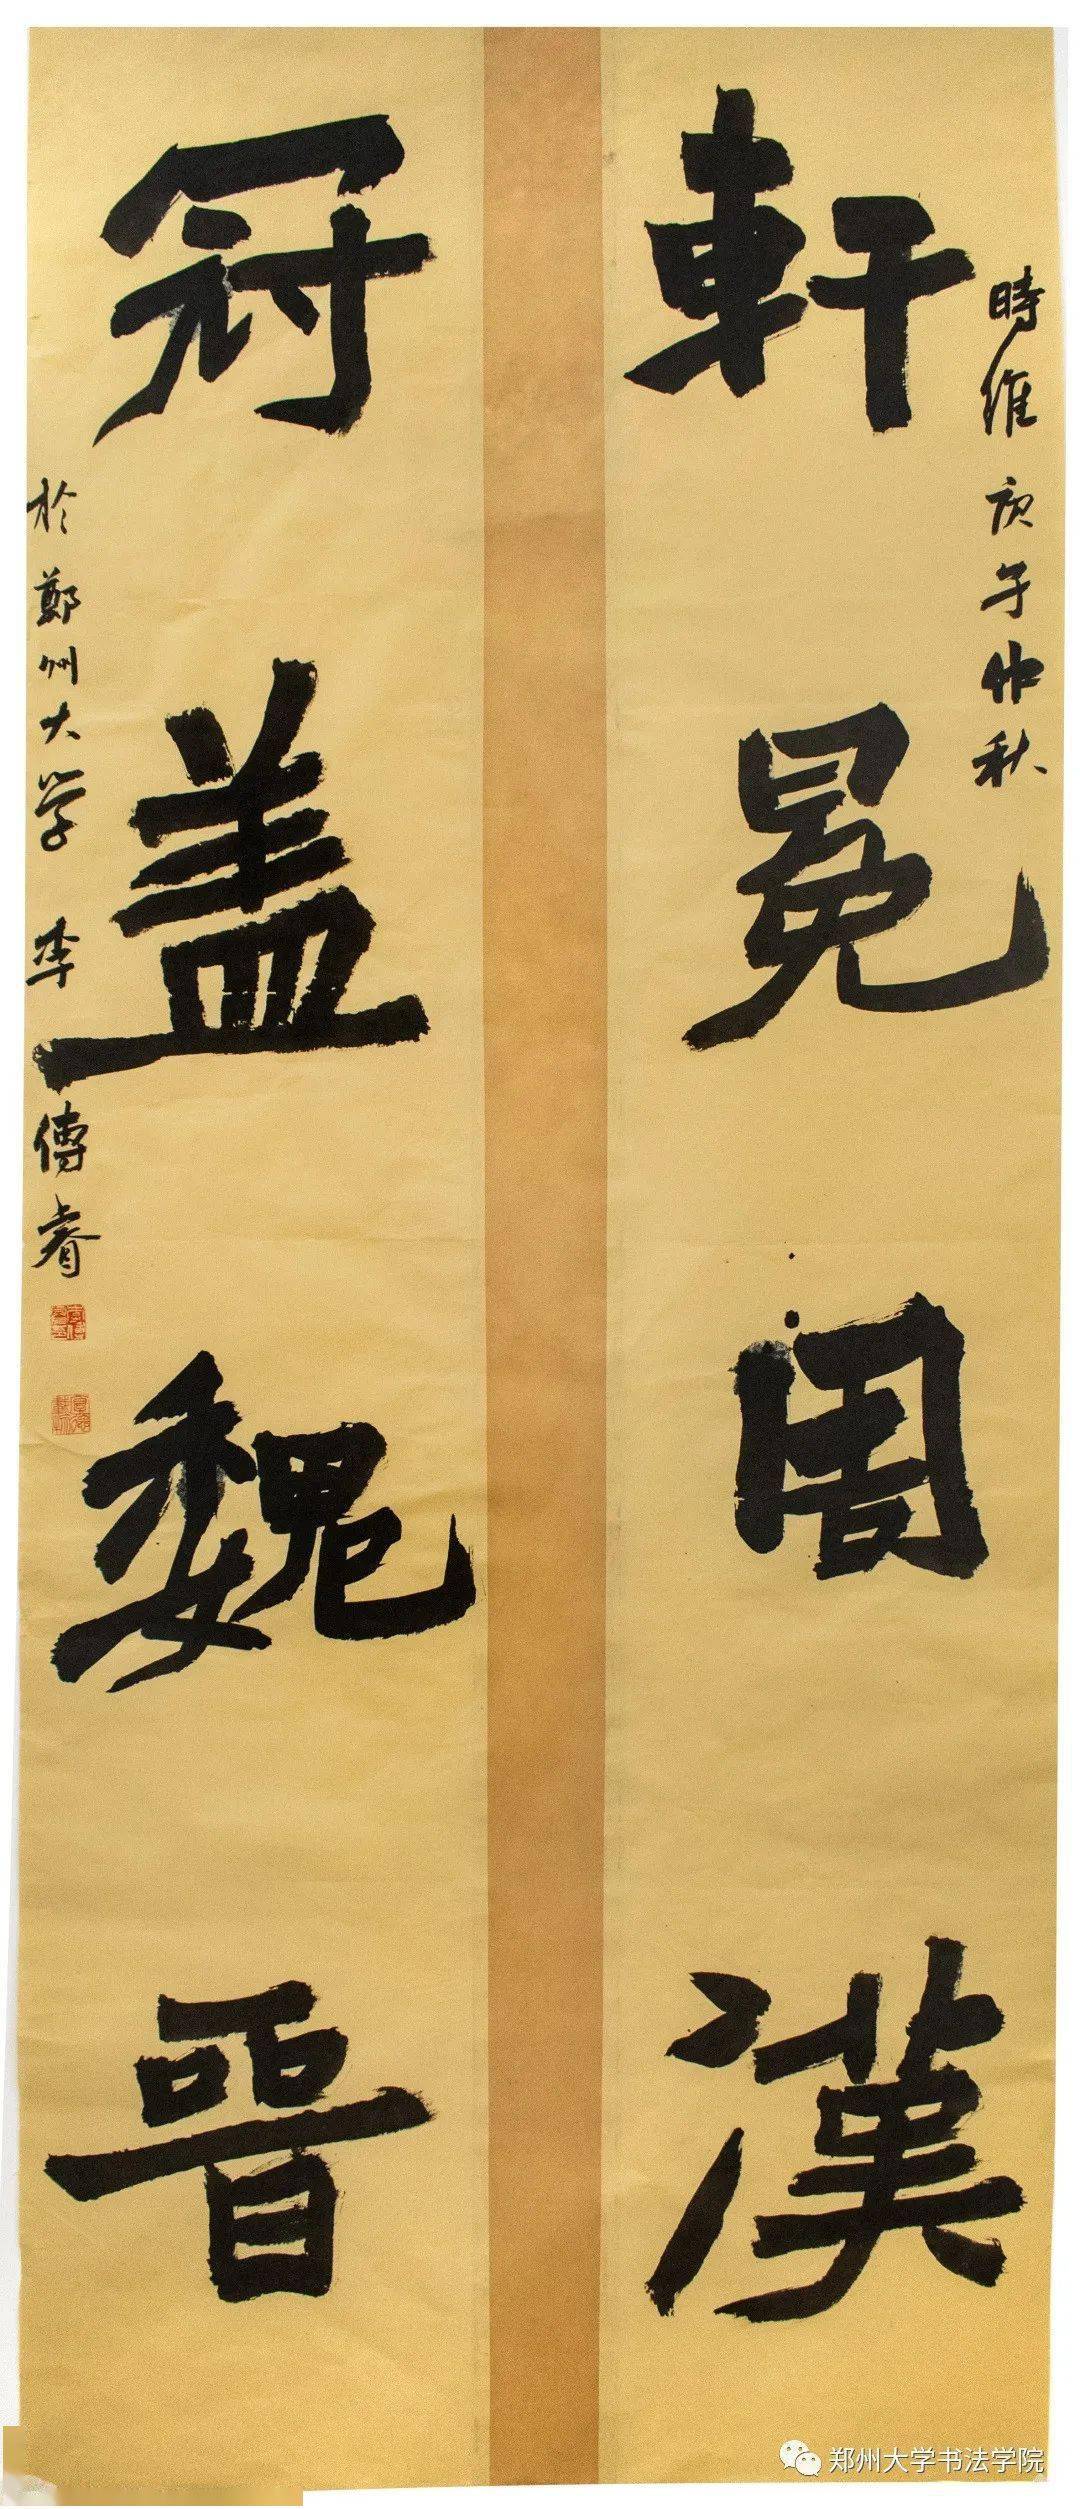 時維庚子仲秋
軒冕周漢
冠盖魏晉
於鄭州大学李傳睿
郑州大学书法学院